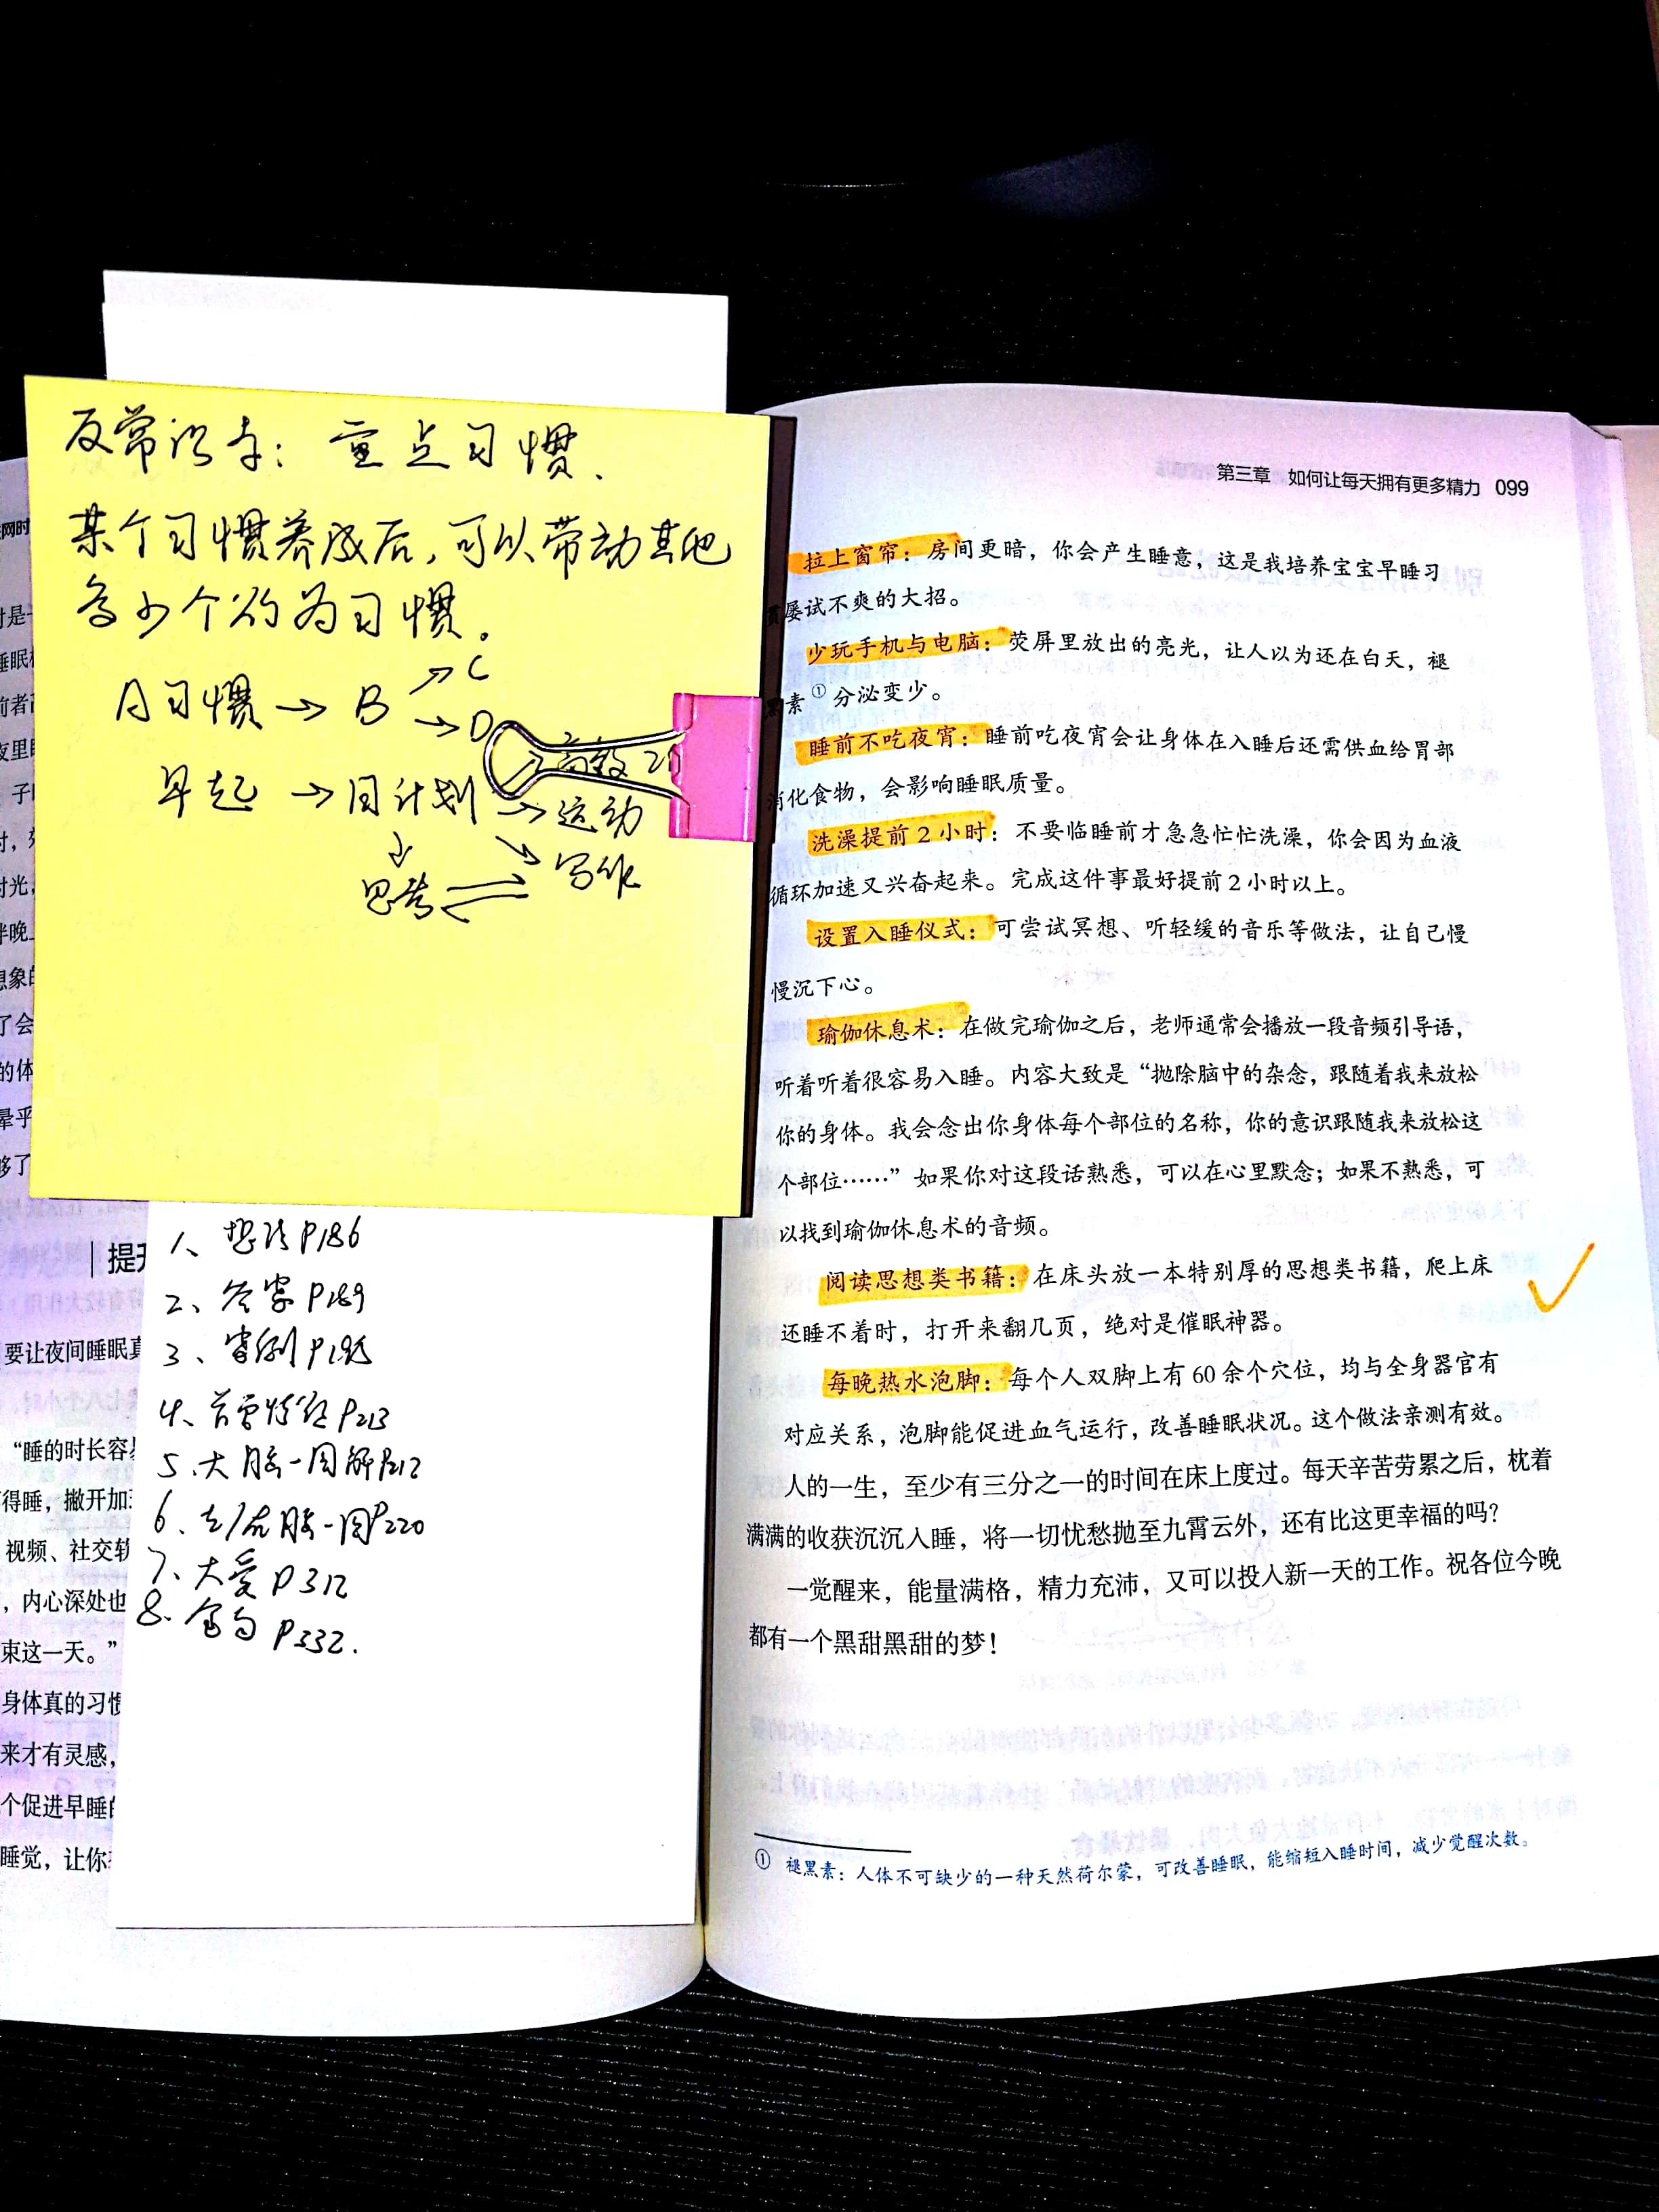 反常识卡：重点习惯、
某个习惯养成后，可以带动其他
多少个行为习惯。
A习惯 → B ↗ C
→ D
早起 → 周计划 → 高效
→ 运动
↓ ↘ 写作
思考 ⇌
1、想法 P186
2、答案 P189
3、案例
4、 P213
5、大脑一周解
6、左/右脑一周 P220
7、大爱 P312
8、金句 P332.
网时
时是
睡眠
前者
夜里
子
时，
时光，
伴晚
想象的
了会
的体
晕乎
够了
提升
要让夜间睡眠真
“睡的时长容易
得睡，撇开加
视频、社交软
，内心深处也
束这一天。”
身体真的习惯
来才有灵感，
个促进早睡的
睡觉，让你
第三章 如何让每天拥有更多精力 099
拉上窗帘：房间更暗，你会产生睡意，这是我培养宝宝早睡习
惯屡试不爽的大招。
少玩手机与电脑：荧屏里放出的亮光，让人以为还在白天，褪
黑素①分泌变少。
睡前不吃夜宵：睡前吃夜宵会让身体在入睡后还需供血给胃部
消化食物，会影响睡眠质量。
洗澡提前2小时：不要临睡前才急急忙忙洗澡，你会因为血液
循环加速又兴奋起来。完成这件事最好提前2小时以上。
设置入睡仪式：可尝试冥想、听轻缓的音乐等做法，让自己慢
慢沉下心。
瑜伽休息术：在做完瑜伽之后，老师通常会播放一段音频引导语，
听着听着很容易入睡。内容大致是“抛除脑中的杂念，跟随着我来放松
你的身体。我会念出你身体每个部位的名称，你的意识跟随我来放松这
个部位……”如果你对这段话熟悉，可以在心里默念；如果不熟悉，可
以找到瑜伽休息术的音频。
阅读思想类书籍：在床头放一本特别厚的思想类书籍，爬上床
还睡不着时，打开来翻几页，绝对是催眠神器。
每晚热水泡脚：每个人双脚上有60余个穴位，均与全身器官有
对应关系，泡脚能促进血气运行，改善睡眠状况。这个做法亲测有效。
人的一生，至少有三分之一的时间在床上度过。每天辛苦劳累之后，枕着
满满的收获沉沉入睡，将一切忧愁抛至九霄云外，还有比这更幸福的吗？
一觉醒来，能量满格，精力充沛，又可以投入新一天的工作。祝各位今晚
都有一个黑甜黑甜的梦！
① 褪黑素：人体不可缺少的一种天然荷尔蒙，可改善睡眠，能缩短入睡时间，减少觉醒次数。